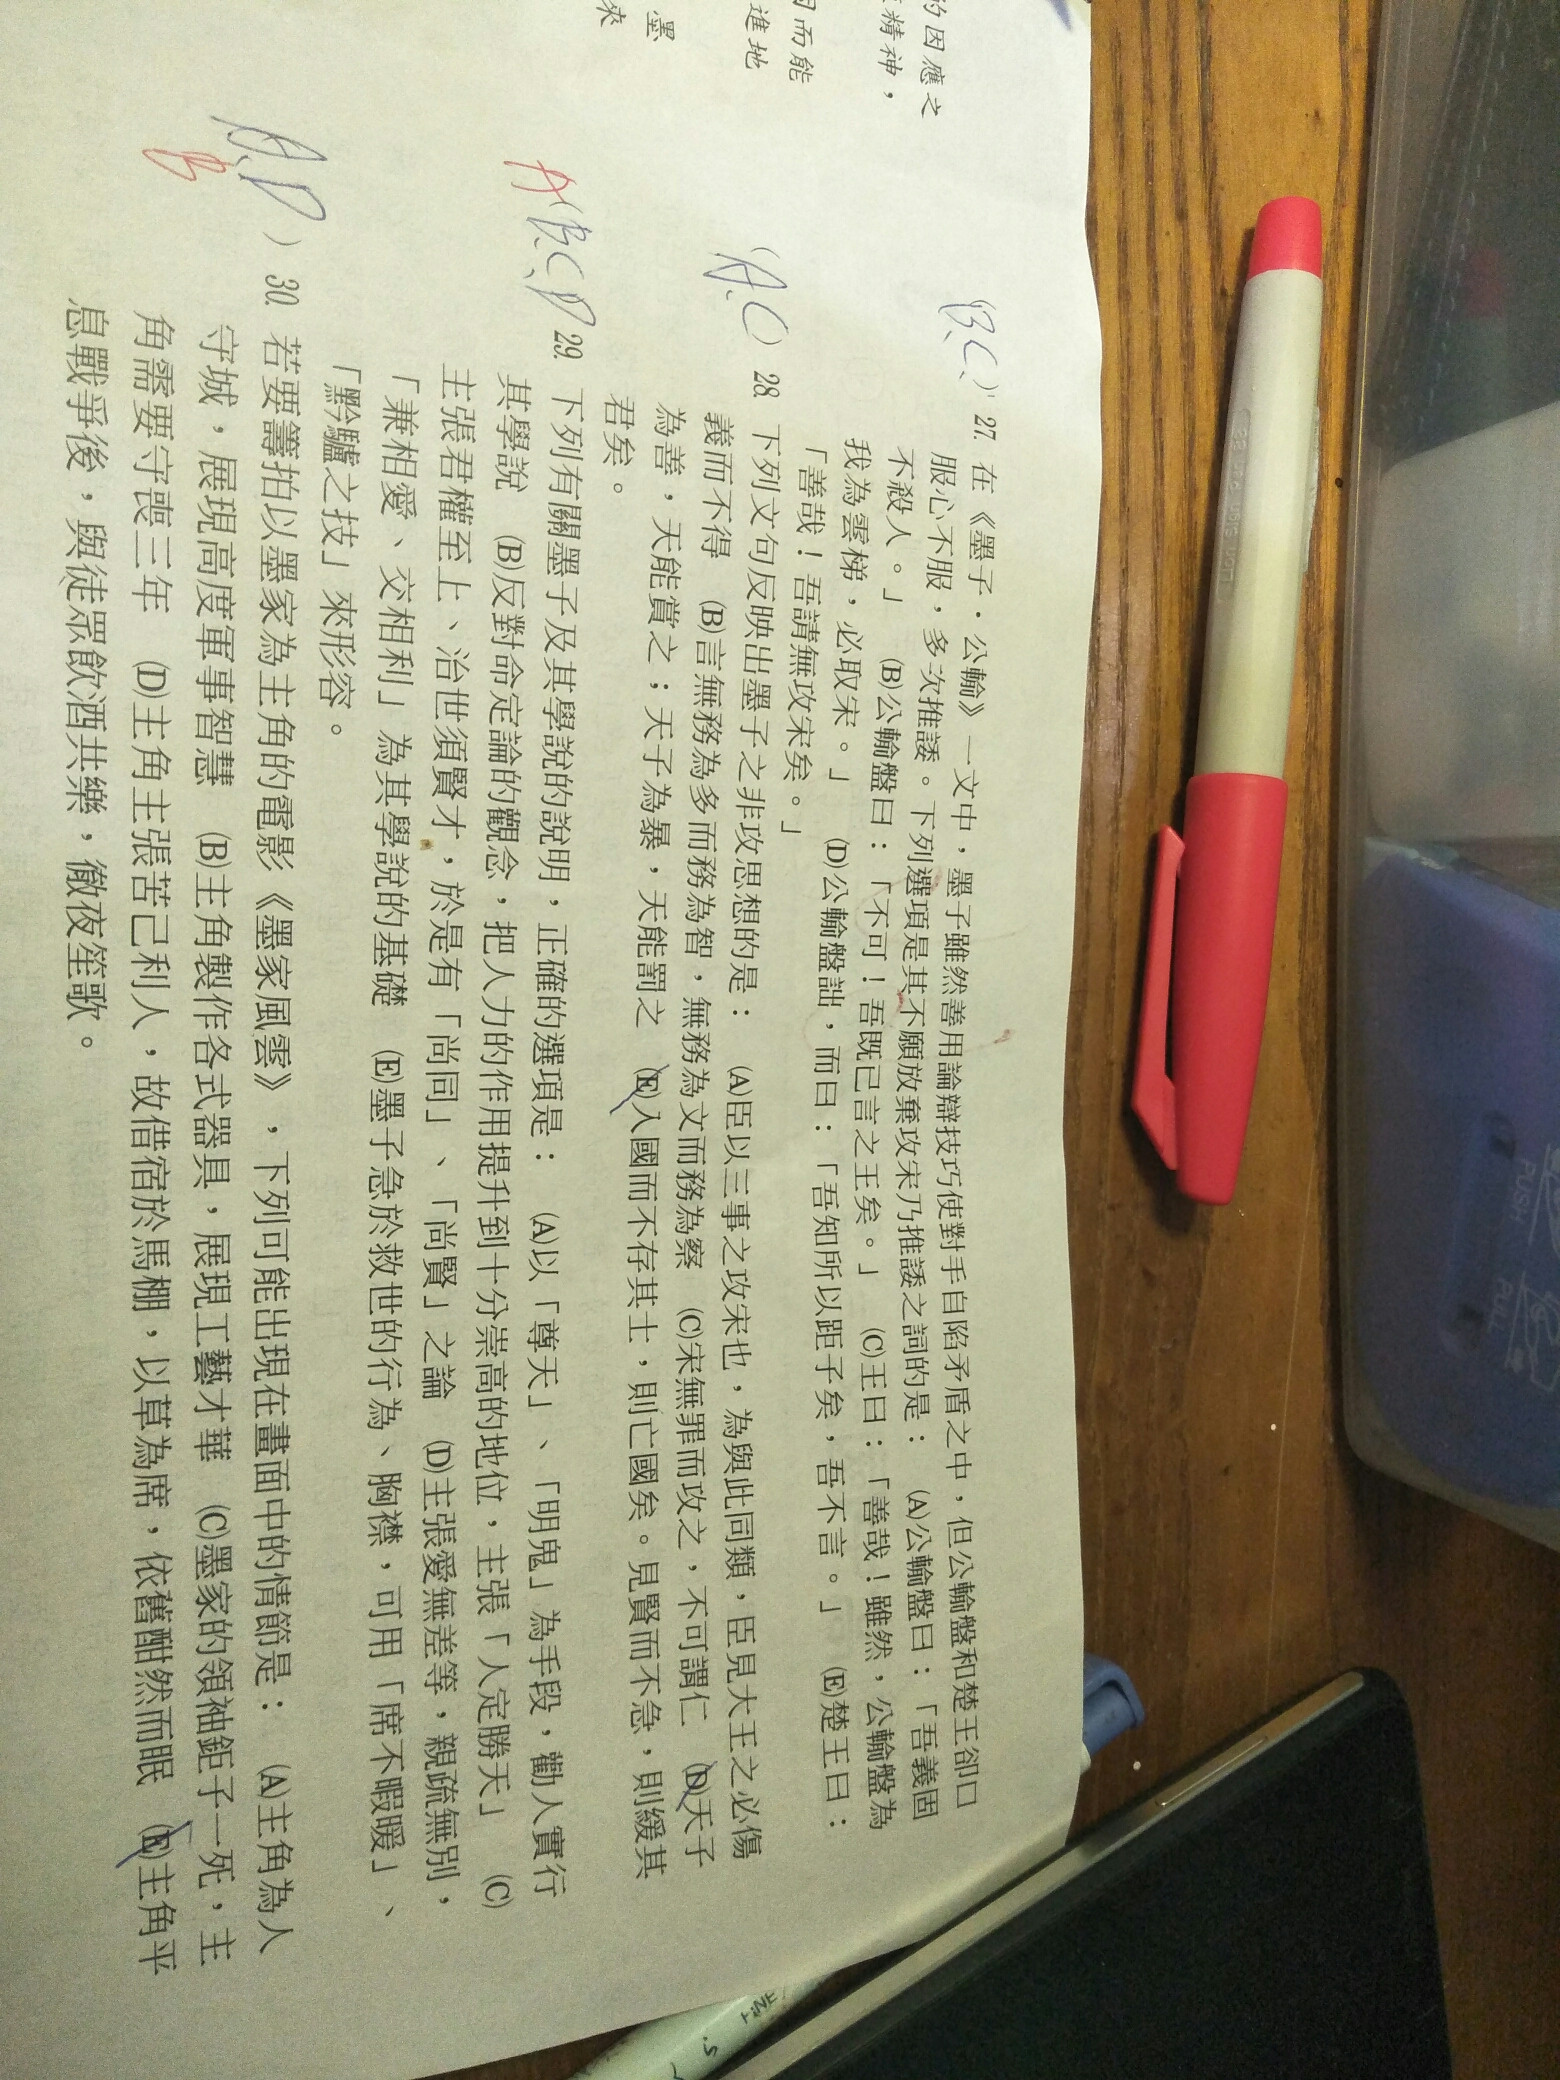 的因應之
精神，
因而能
進地
墨
來
(B.C.) 27. 在《墨子·公輸》一文中，墨子雖然善用論辯技巧使對手自陷矛盾之中，但公輸盤和楚王卻口
服心不服，多次推諉。下列選項是其不願放棄攻宋乃推諉之詞的是： (A)公輸盤曰：「吾義固
不殺人。」 (B)公輸盤曰：「不可！吾既已言之王矣。」 (C)王曰：「善哉！雖然，公輸盤為
我為雲梯，必取宋。」 (D)公輸盤詘，而曰：「吾知所以距子矣，吾不言。」 (E)楚王曰：
「善哉！吾請無攻宋矣。」
(A.C) 28. 下列文句反映出墨子之非攻思想的是： (A)臣以三事之攻宋也，為與此同類，臣見大王之必傷
義而不得 (B)言無務為多而務為智，無務為文而務為察 (C)宋無罪而攻之，不可謂仁 (D)天子
為善，天能賞之；天子為暴，天能罰之 (E)入國而不存其士，則亡國矣。見賢而不急，則緩其
君矣。
A(B.C.D 29. 下列有關墨子及其學說的說明，正確的選項是： (A)以「尊天」、「明鬼」為手段，勸人實行
其學說 (B)反對命定論的觀念，把人力的作用提升到十分崇高的地位，主張「人定勝天」 (C)
主張君權至上、治世須賢才，於是有「尚同」、「尚賢」之論 (D)主張愛無差等，親疏無別，
「兼相愛、交相利」為其學說的基礎 (E)墨子急於救世的行為、胸襟，可用「席不暇暖」、
「黔驢之技」來形容。
A.D ) 30. 若要籌拍以墨家為主角的電影《墨家風雲》，下列可能出現在畫面中的情節是： (A)主角為人
B
守城，展現高度軍事智慧 (B)主角製作各式器具，展現工藝才華 (C)墨家的領袖鉅子一死，主
角需要守喪三年 (D)主角主張苦己利人，故借宿於馬棚，以草為席，依舊酣然而眠 (E)主角平
息戰爭後，與徒眾飲酒共樂，徹夜笙歌。
PUSH
PULL